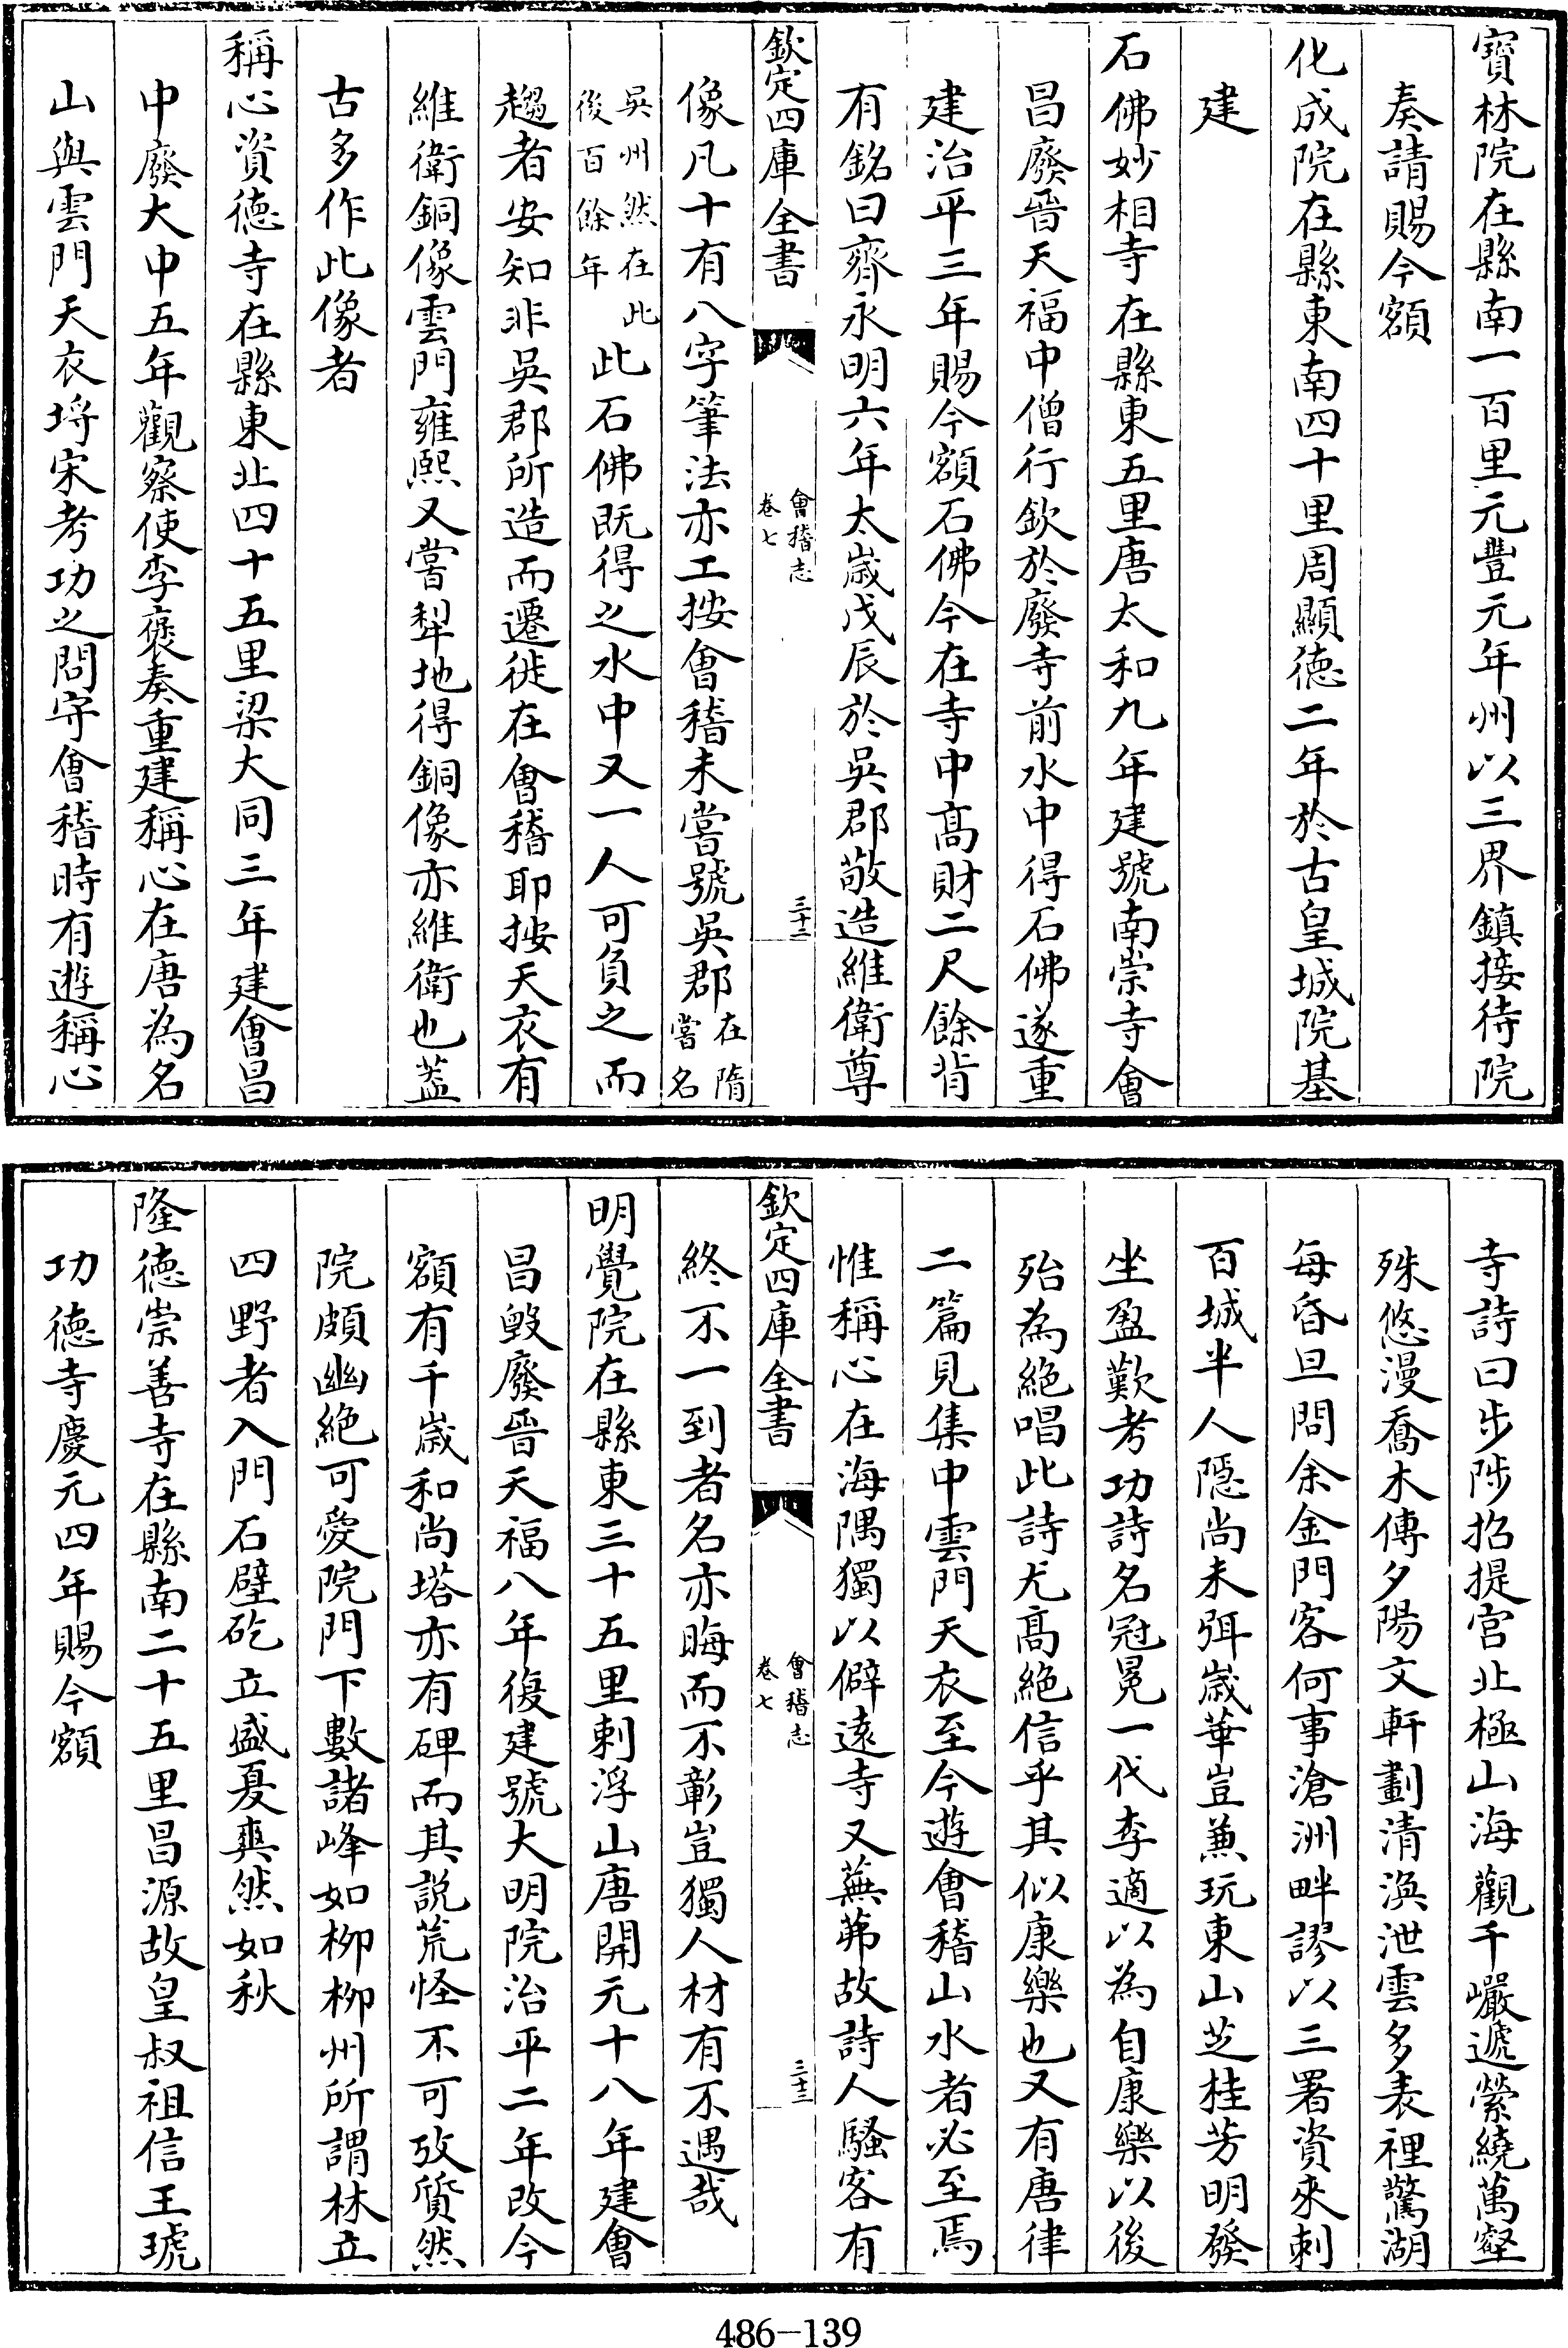 寶林院在縣南一百里元豐元年州以三界鎮接待院
奏請賜今額
化成院在縣東南四十里周顯徳二年於古皇城院基
建
石佛妙相寺在縣東五里唐太和九年建號南崇寺會
昌廢晉天福中僧行欽於廢寺前水中得石佛遂重
建治平三年賜今額石佛今在寺中髙財二尺餘背
有銘曰齊永明六年太歲戊辰於吳郡敬造維衛尊
欽定四庫全書
會稽志
卷七
三十二
像凡十有八字筆法亦工按會稽未嘗號吳郡在隋嘗名
吳州然在此後百餘年此石佛既得之水中又一人可負之而
趨者安知非吳郡所造而遷徙在會稽耶按天衣有
維衛銅像雲門雍熙又嘗犁地得銅像亦維衛也蓋
古多作此像者
稱心資徳寺在縣東北四十五里梁大同三年建會昌
中廢大中五年觀察使李褒奏重建稱心在唐為名
山與雲門天衣埒宋考功之問守會稽時有遊稱心
寺詩曰步陟招提宫北極山海觀千巖遞縈繞萬壑
殊悠漫喬木傳夕陽文軒劃清渙泄雲多表裡驚湖
每昏旦問余金門客何事滄洲畔謬以三署資來刺
百城半人隠尚未弭歲華豈兼玩東山芝桂芳明發
坐盈歎考功詩名冠冕一代李適以為自康樂以後
殆為絶唱此詩尤髙絶信乎其似康樂也又有唐律
二篇見集中雲門天衣至今遊會稽山水者必至焉
惟稱心在海隅獨以僻遠寺又蕪茀故詩人騷客有
欽定四庫全書
會稽志
卷七
三十三
終不一到者名亦晦而不彰豈獨人材有不遇哉
明覺院在縣東三十五里刺浮山唐開元十八年建會
昌毀廢晉天福八年復建號大明院治平二年改今
額有千歲和尚塔亦有碑而其説荒怪不可攷質然
院頗幽絶可愛院門下數諸峰如柳柳州所謂林立
四野者入門石壁矻立盛夏爽然如秋
隆徳崇善寺在縣南二十五里昌源故皇叔祖信王琥
功徳寺慶元四年賜今額
486-139